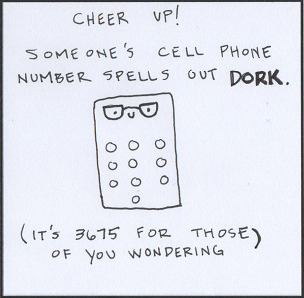 CHEER UP!
SOMEONE'S CELL PHONE
NUMBER SPELLS OUT DORK.
(IT'S 3675 FOR THOSE)
OF YOU WONDERING